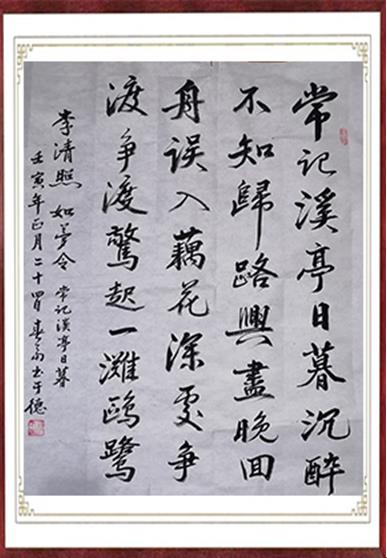 常记溪亭日暮沉醉
不知歸路興盡晚回
舟误入藕花深处争
渡争渡驚起一灘鷗鹭
李清照 如梦令 常记溪亭日暮
壬寅年正月二十四